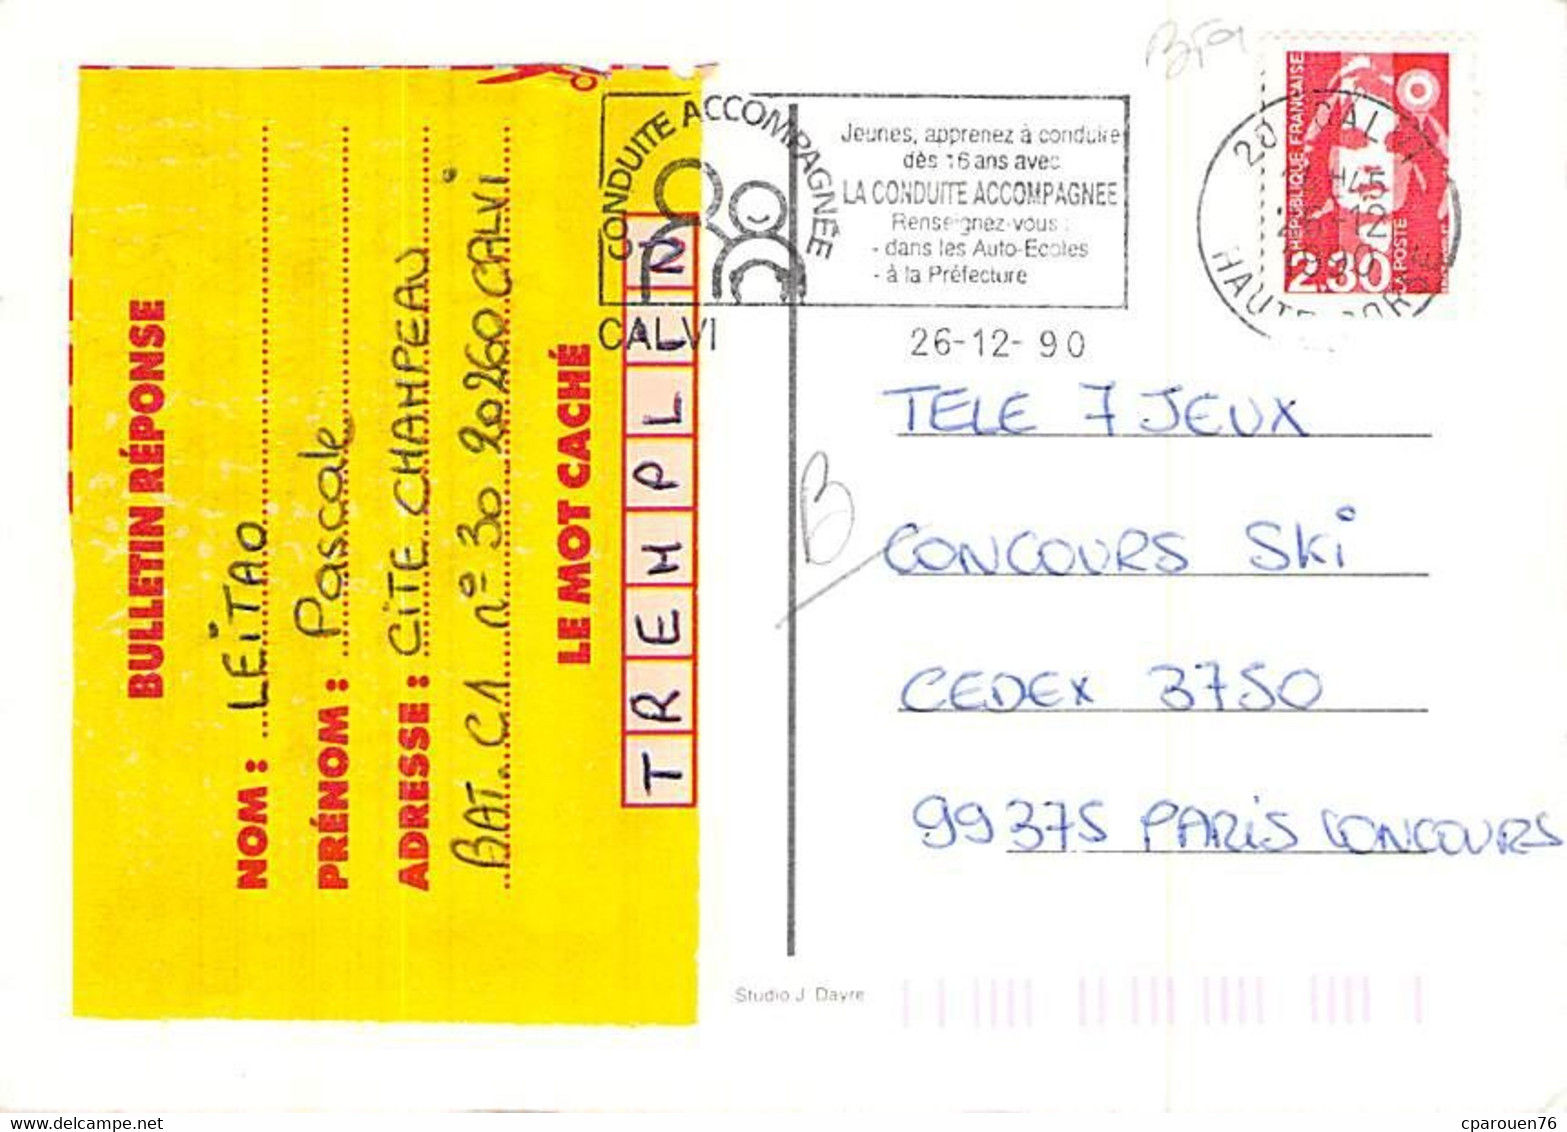 BULLETIN RÉPONSE
NOM : LEITAO
PRÉNOM : Pascale
ADRESSE : CITE CHAMPEAU
BAT. C1 n° 30 20260 CALVI
LE MOT CACHÉ
TREMPLIN
CONDUITE ACCOMPAGNÉE
Jeunes, apprenez à conduire
dès 16 ans avec
LA CONDUITE ACCOMPAGNEE
Renseignez-vous :
- dans les Auto-Ecoles
- à la Préfecture
CALVI
26-12-90
RÉPUBLIQUE FRANÇAISE
2.30 LA POSTE
20 CALVI
HAUTE CORSE
B
TELE 7 JEUX
CONCOURS SKi
CEDEX 3750
99375 PARIS CONCOURS
Studio J. Dayre
cparouen76